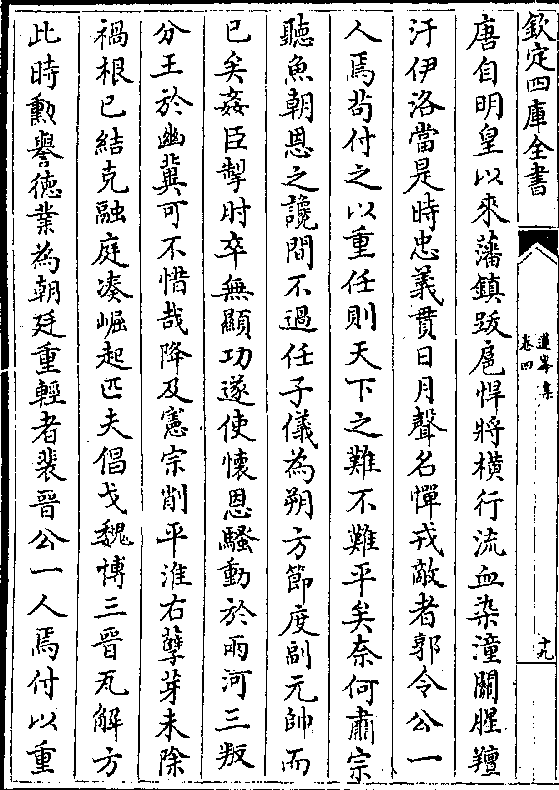 欽定四庫全書
卷四
十九
唐自明皇以來藩鎮跋扈悍將横行流血染潼關腥羶
汙伊洛當是時忠義貫日月聲名憚戎敵者郭令公一
人焉茍付之以重任則天下之難不難平矣奈何肅宗
聽魚朝恩之讒間不過任子儀為朔方節度副元帥而
已矣姦臣掣肘卒無顯功遂使懷恩騷動於兩河三叛
分王於幽冀可不惜哉降及憲宗削平淮右孽芽未除
禍根已結克融庭凑崛起匹夫倡戈魏博三晉瓦解方
此時勲譽德業為朝廷重輕者裴晉公一人焉付以重